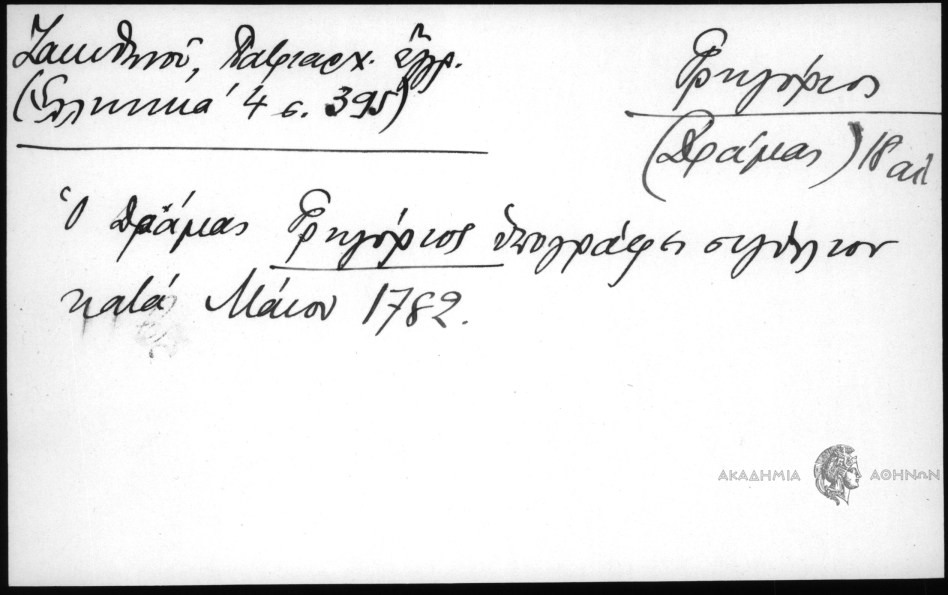 Ζακυθηνοῦ, Πατριαρχ. ἔγγρ.
(Ἑλληνικά 4 σ. 395)
Γρηγόριος
(Δράμας) 18 αἰ
Ὁ Δράμας Γρηγόριος ὑπογράφει σιγίλλιον
κατά Μάιον 1782.
ΑΚΑΔΗΜΙΑ ΑΘΗΝΩΝ